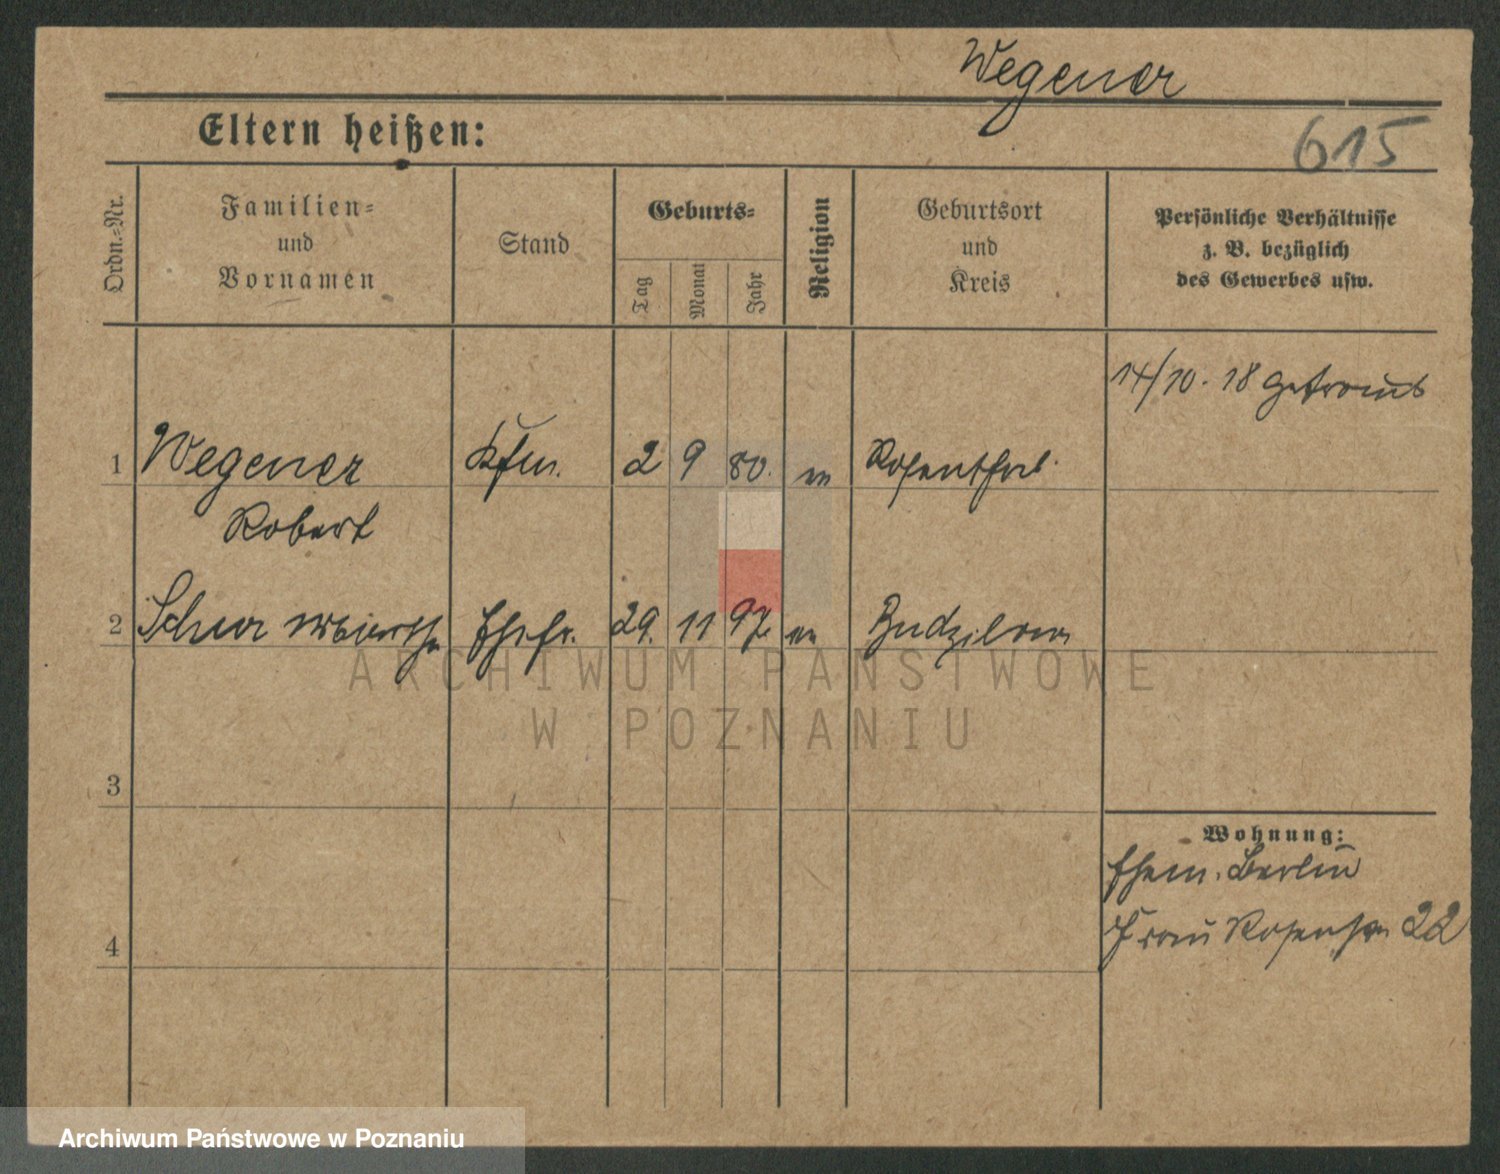 Wegener
615
Eltern heißen:
Ordn.=Nr.
Familien=
und
Vornamen
Stand
Geburts=
Tag
Monat
Jahr
Religion
Geburtsort
und
Kreis
Persönliche Verhältnisse
z. B. bezüglich
des Gewerbes usw.
14/10. 18 getraut
1 Wegener Kfm. 2 9 80. ev Rosenthal.
Robert
2 Schur Ehefr. 29. 11 97. ev
3
4
Wohnung:
Ehem. Berlin
Frau 22
ARCHIWUM PAŃSTWOWE
W POZNANIU
Archiwum Państwowe w Poznaniu